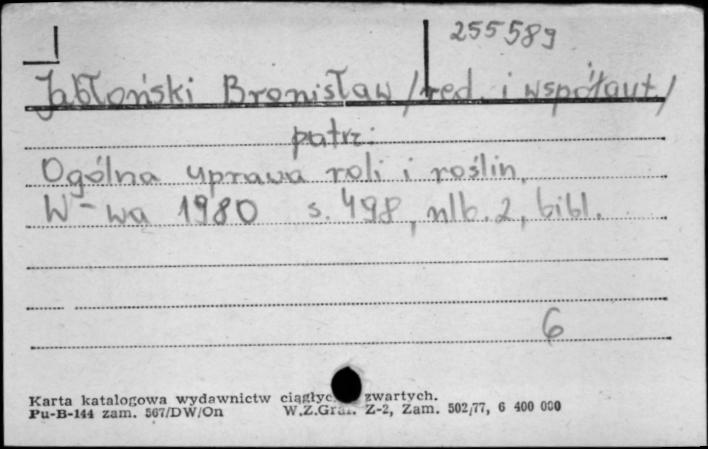 255589
Jabłoński Bronisław /red. i współaut/
patrz:
Ogólna uprawa roli i roślin.
W-wa 1980 s. 498, nlb. 2, bibl.
6
Karta katalogowa wydawnictw zwartych.
Pu-B-144 zam. 567/DW/On W.Z.Graf. Z-2, Zam. 502/77, 6 400 000